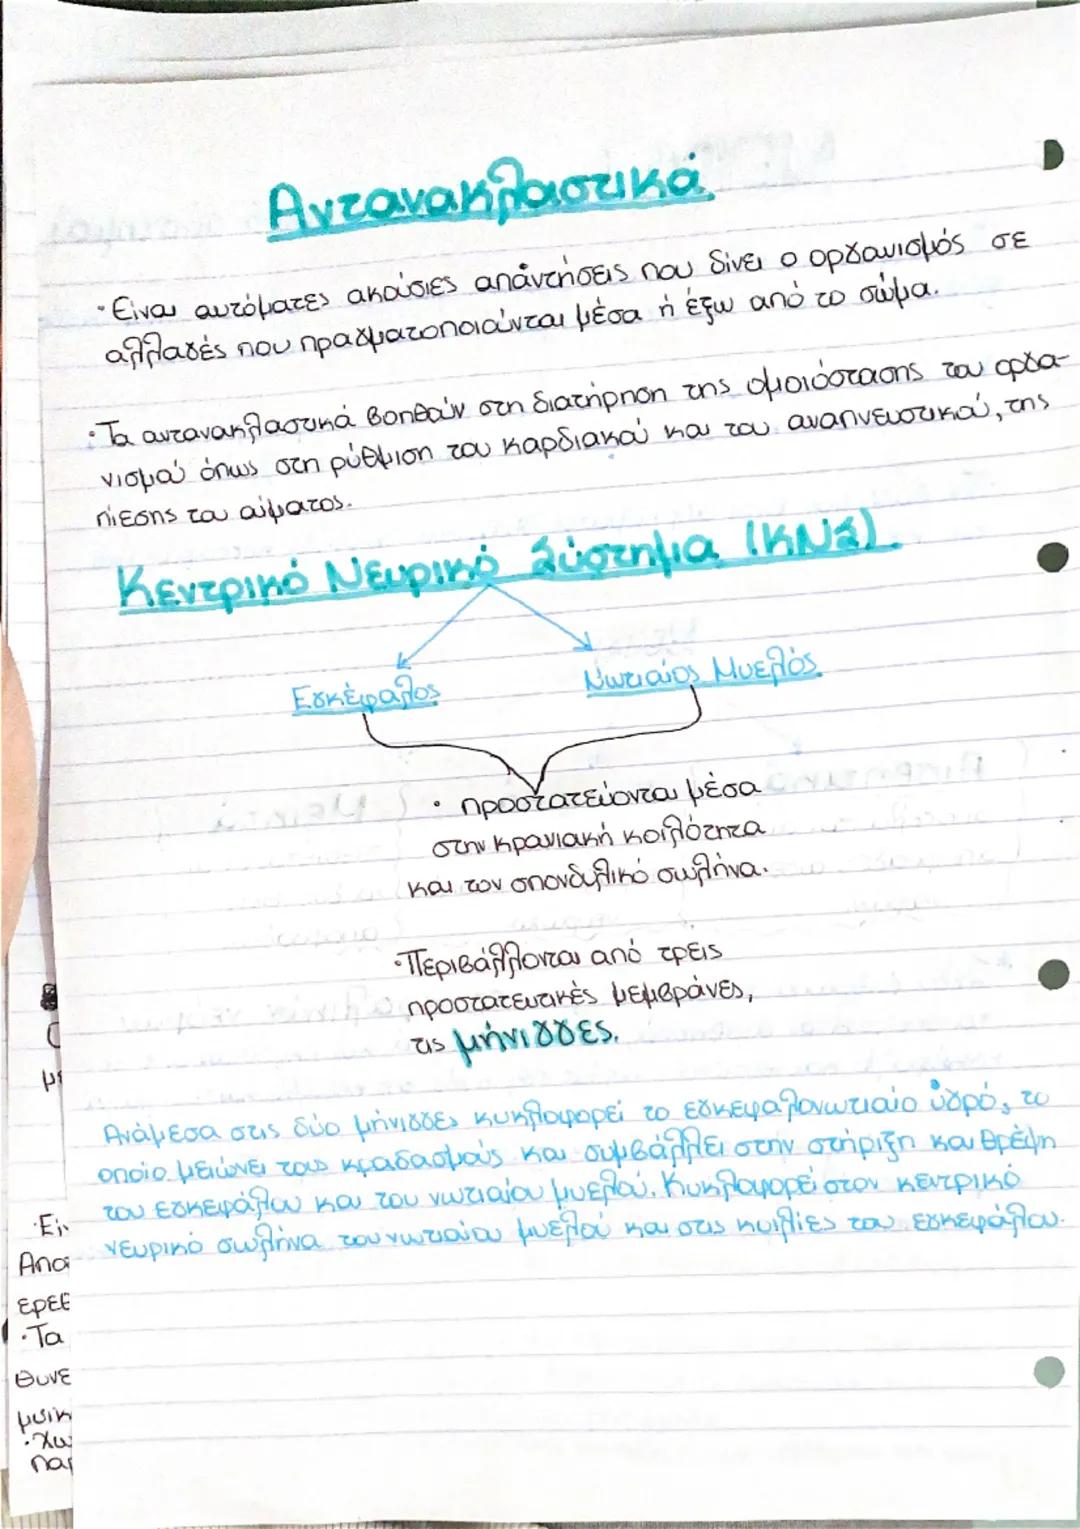 Αντανακλαστικά
· Είναι αυτόματες ακούσιες απάντήσεις που δίνει ο οργανισμός σε
αλλαγές που πραγματοποιούνται μέσα ή έξω από το σώμα.
· Τα αντανακλαστικά βοηθούν στη διατήρηση της ομοιόστασης του οργα-
νισμού όπως στη ρύθμιση του καρδιακού και του αναπνευστικού, της
πίεσης του αίματος.
Κεντρικό Νευρικό Σύστημα (ΚΝΣ).
Εγκέφαλος
Νωτιαίος Μυελός
· προστατεύονται μέσα
στην κρανιακή κοιλότητα
και τον σπονδυλικό σωλήνα.
· Περιβάλλονται από τρεις
προστατευτικές μεμβράνες,
τις μήνιγγες.
Ανάμεσα στις δύο μήνιγγες κυκλοφορεί το εγκεφαλονωτιαίο υγρό, το
οποίο μειώνει τους κραδασμούς και συμβάλλει στην στήριξη και θρέψη
του εγκεφάλου και του νωτιαίου μυελού. Κυκλοφορεί στον κεντρικό
νευρικό σωλήνα του νωτιαίου μυελού και στις κοιλίες του εγκεφάλου.
· Τα